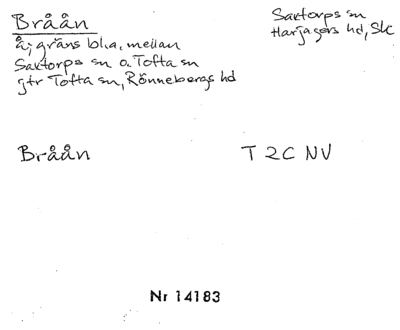 Bråån
Saxtorps sn
Harjagers hd, Sk
å; gräns bl.a. mellan
Saxtorps sn o. Tofta sn
gtr Tofta sn, Rönnebergs hd
Bråån
T 2C NV
Nr 14183